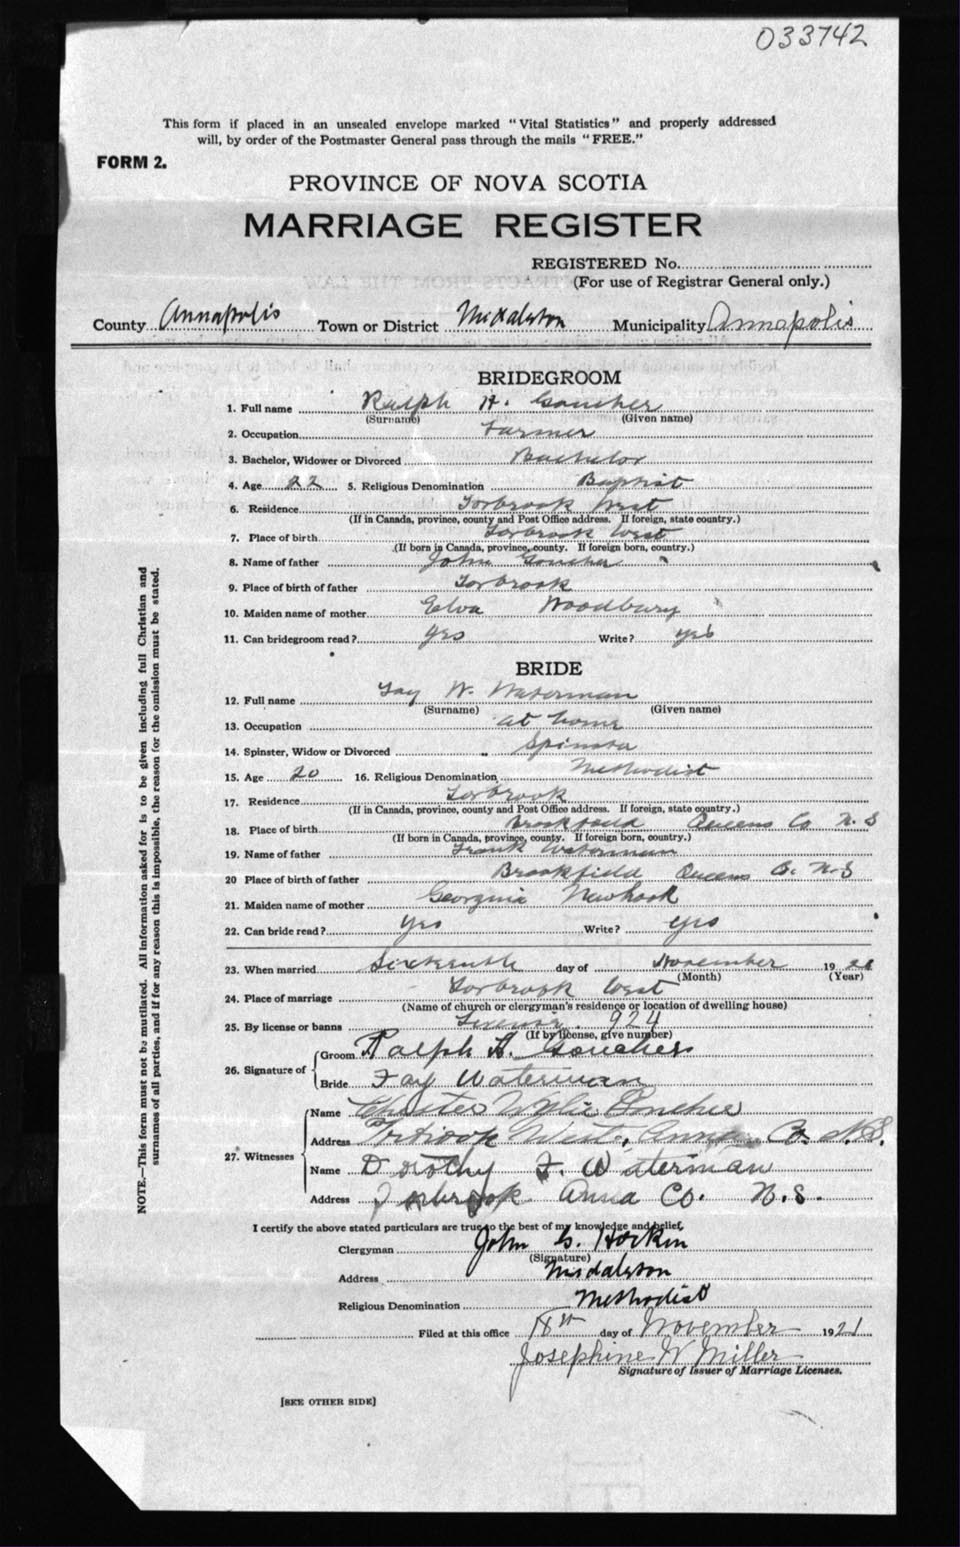 033742
This form if placed in an unsealed envelope marked "Vital Statistics" and properly addressed
will, by order of the Postmaster General pass through the mails "FREE."
FORM 2.
PROVINCE OF NOVA SCOTIA
MARRIAGE REGISTER
REGISTERED No.
(For use of Registrar General only.)
County Annapolis Town or District Middleton Municipality Annapolis
BRIDEGROOM
1. Full name Ralph H. Goucher
(Surname) (Given name)
2. Occupation Farmer
3. Bachelor, Widower or Divorced Bachelor
4. Age 22 5. Religious Denomination Baptist
6. Residence Torbrook West
(If in Canada, province, county and Post Office address. If foreign, state country.)
7. Place of birth Torbrook West
(If born in Canada, province, county. If foreign born, country.)
8. Name of father John Goucher
9. Place of birth of father Torbrook
10. Maiden name of mother Elva Woodbury
11. Can bridegroom read? yes Write? yes
BRIDE
12. Full name Fay W. Waterman
(Surname) (Given name)
13. Occupation at home
14. Spinster, Widow or Divorced Spinster
15. Age 20 16. Religious Denomination Methodist
17. Residence Torbrook
(If in Canada, province, county and Post Office address. If foreign, state country.)
18. Place of birth Brookfield Queens Co N.S
(If born in Canada, province, county. If foreign born, country.)
19. Name of father Frank Waterman
20 Place of birth of father Brookfield Queens Co. N.S
21. Maiden name of mother Georginia Newhook
22. Can bride read? yes Write? yes
23. When married Sixteenth day of November 1921
(Month) (Year)
24. Place of marriage Torbrook West
(Name of church or clergyman's residence or location of dwelling house)
25. By license or banns 924
(If by license, give number)
26. Signature of
Groom Ralph H. Goucher
Bride Fay Waterman
27. Witnesses
Name Goucher
Address Torbrook West, Co. N.S.
Name Dorothy F. Waterman
Address Torbrook Anna Co. N.S.
I certify the above stated particulars are true to the best of my knowledge and belief.
Clergyman John G. Hockin
(Signature)
Address Middleton
Religious Denomination Methodist
Filed at this office 18th day of November 1921
Josephine W Miller
Signature of Issuer of Marriage Licenses.
[SEE OTHER SIDE]
NOTE.—This form must not be mutilated. All information asked for is to be given including full Christian and
surnames of all parties, and if for any reason this is impossible, the reason for the omission must be stated.